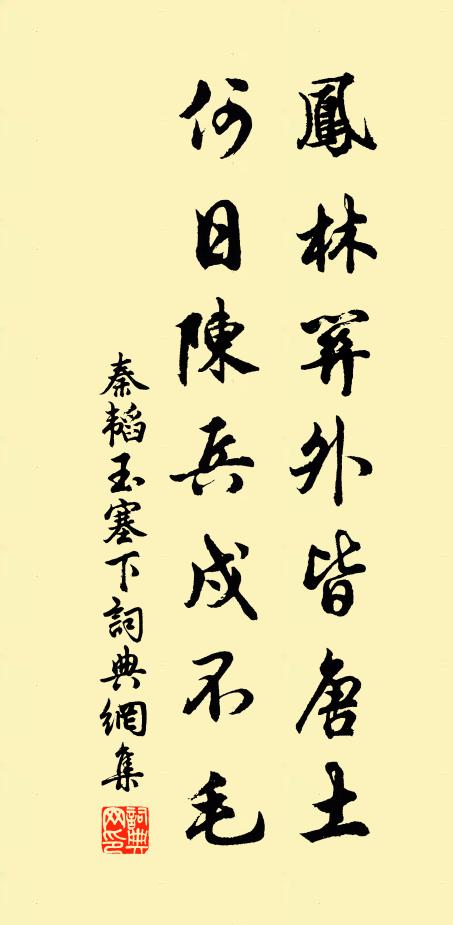 鳳林關外皆唐土
何日陳兵戍不毛
秦韜玉塞下詞典網集
詞典網印